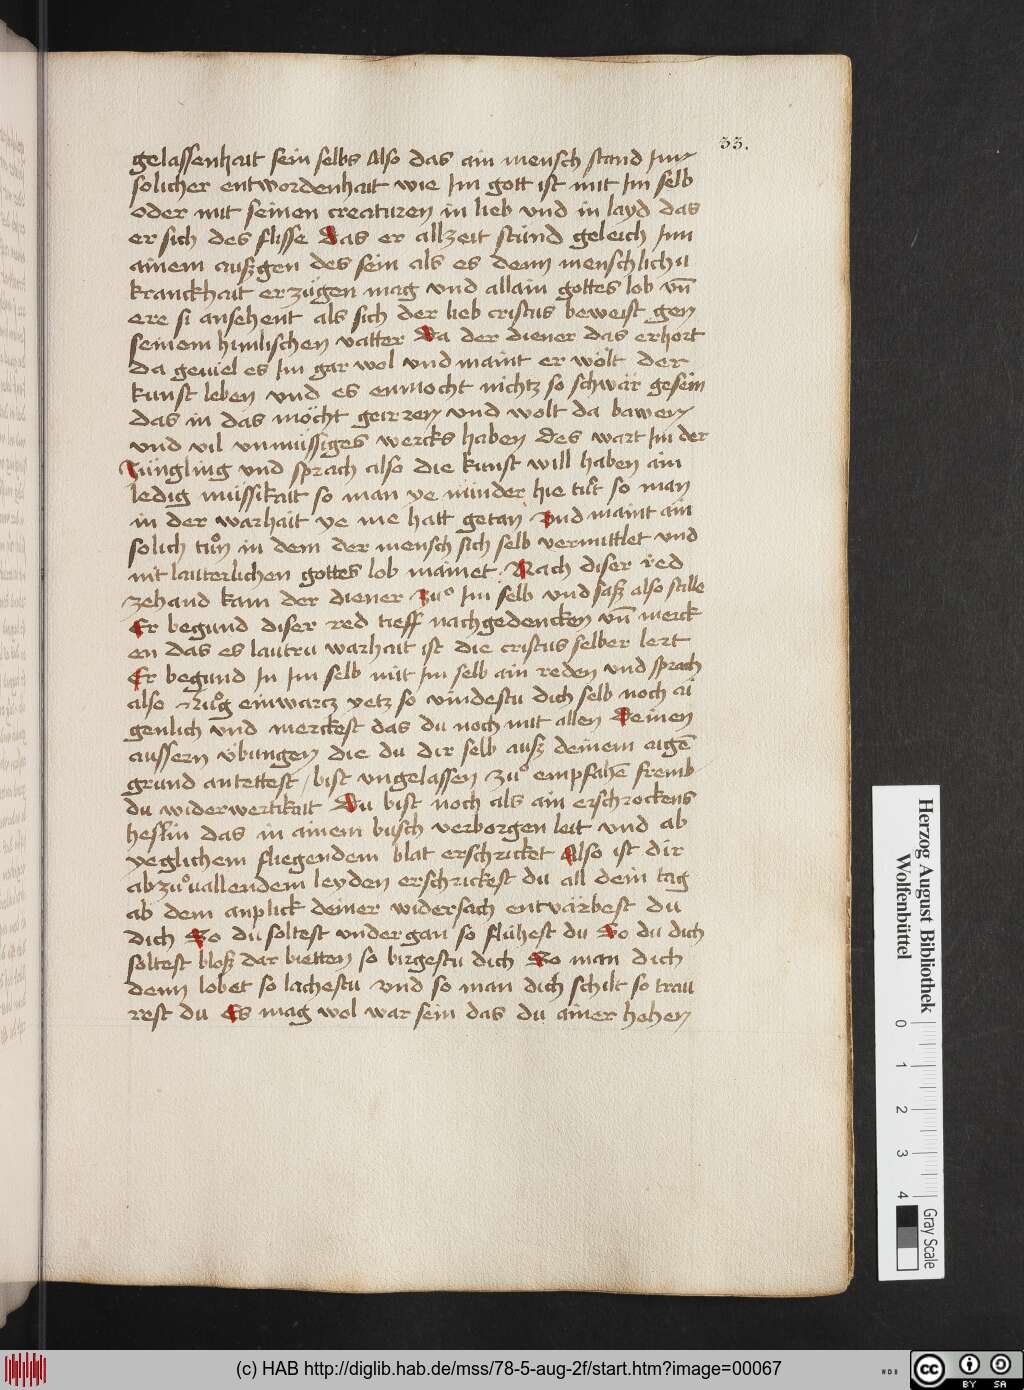 33.
gelassenhait sein selbs Also das ain mensch stand Inn
solicher entwordenhait wie Im gott ist mit Im selb
oder mit seinen creaturen in lieb vnd in layd das
er sich des flisse Das er allzeit stünd geleich Inn
ainem außgen des sein als es denn menschlichü
kranckhait erzügen mag vnd allain gottes lob vn̄
ere si ansehent als sich der lieb cristus beweist gen
seinem himlischen vatter Da der diener das erhort
da geuiel es Im gar wol vnd maint er wölt der
kunst leben vnd es enmocht nichtz so schwär gesein
das in das möcht geirren vnd wolt da bawen
vnd vil vnmüssiges wercks haben Des wart Im der
Jüngling vnd sprach also die kunst will haben ain
ledig müssikait so man ye minder hie tůt so man
in der warhait ye me hatt getan Vnd maint ain
solich tůn in dem der mensch sich selb vermittlet vnd
nit lauterlichen gottes lob mainet Nach diser red
zehand kam der diener Zuͦ Im selb vnd saß also stille
Er begund diser red tieff nachgedencken vn̄ merck
en das es lautru warhait ist die cristus selber lert
Er begund In Im selb mit Im selb ain reden vnd sprach
also Nůg einwartz yetz so vindestu dich selb noch ai
genlich vnd merckest das du noch mit allen Deinen
aussern übungen die du dir selb auß deinem aigē
grund antettest / bist vngelassen zuͦ empfahē fremb
du widerwertikait Du bist noch als ain erschrockens
heslin das in ainem busch verborgen leit vnd ab
yeglichem fliegendem blat erschricket Also ist dir
abzuͦuallendem leyden erschrickest du all dein tag
ab dem anplick deiner widersach entvärbest du
dich So du soltest vndergan so flühest du So du dich
soltest bloß dar bietten so birgestu dich So man dich
denn lobet so lachestu vnd so man dich schilt so trau
rest du Es mag wol war sein das du ainer hohen
Herzog August Bibliothek
Wolfenbüttel
0 1 2 3 4
Gray Scale
(c) HAB http://diglib.hab.de/mss/78-5-aug-2f/start.htm?image=00067
cc BY SA